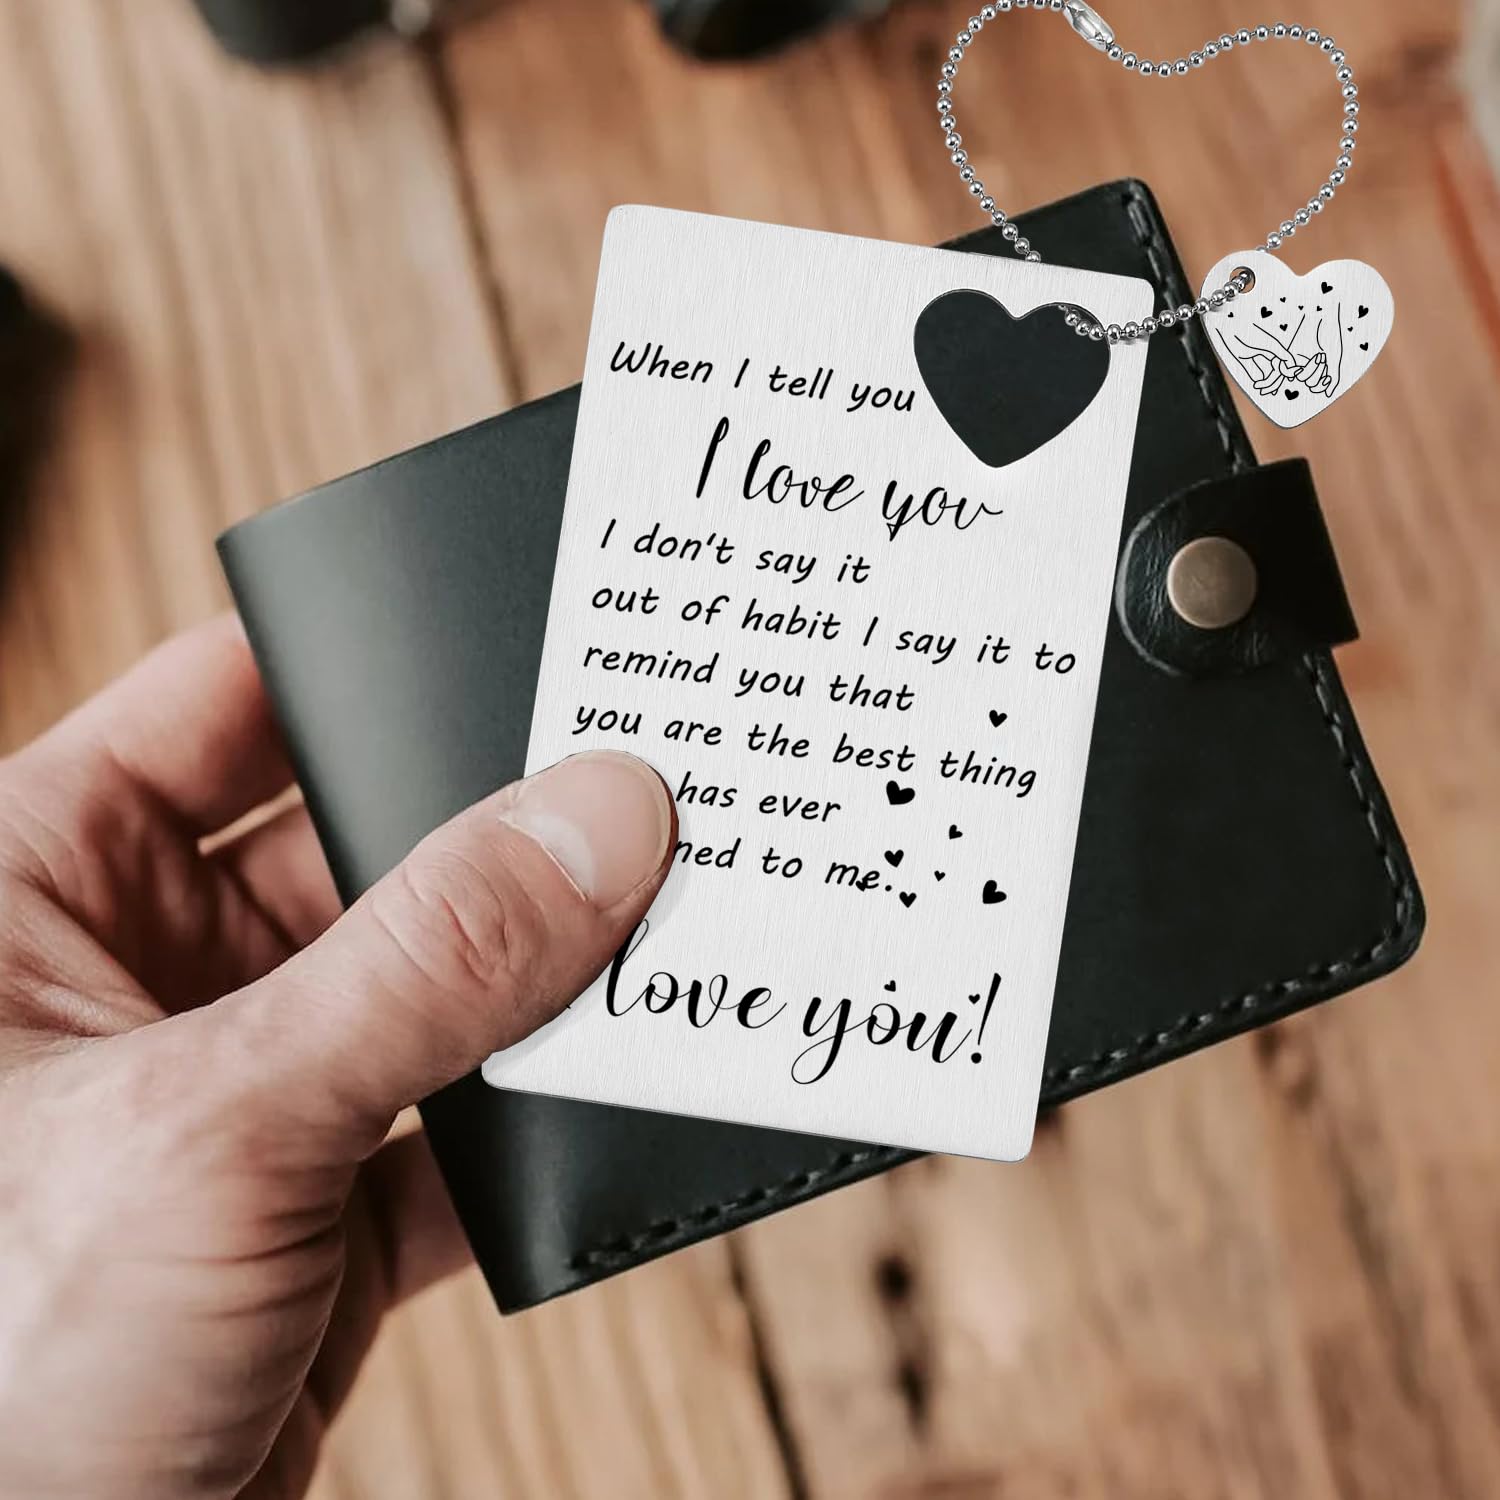 When I tell you
I love you
I don't say it
out of habit I say it to
remind you that
you are the best thing
has ever
ned to me.
love you!